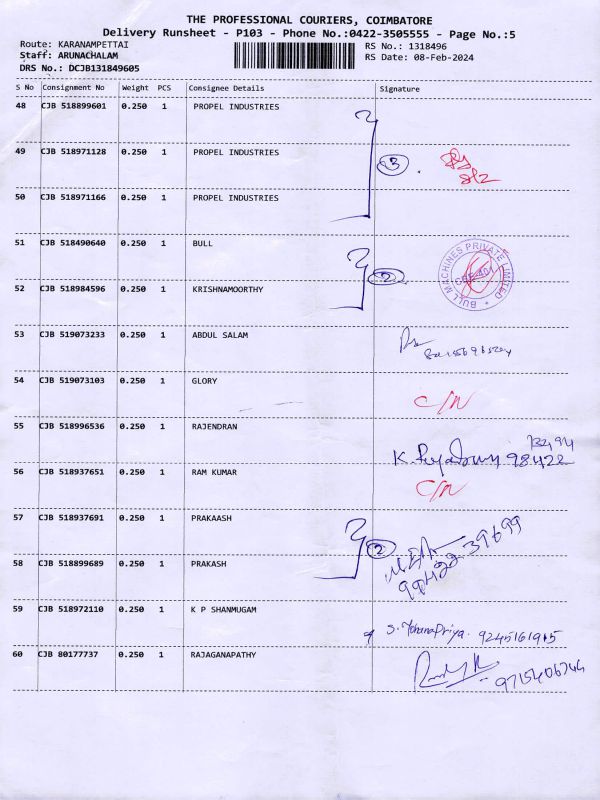 THE PROFESSIONAL COURIERS, COIMBATORE
Delivery Runsheet - P103 - Phone No.:0422-3505555 - Page No.:5
Route: KARANAMPETTAI RS No.: 1318496
Staff: ARUNACHALAM RS Date: 08-Feb-2024
DRS No.: DCJB131849605
S No Consignment No Weight PCS Consignee Details Signature
48 CJB 518899601 0.250 1 PROPEL INDUSTRIES
49 CJB 518971128 0.250 1 PROPEL INDUSTRIES 3
50 CJB 518971166 0.250 1 PROPEL INDUSTRIES
51 CJB 518490640 0.250 1 BULL
BULL MACHINES PRIVATE LIMITED
52 CJB 518984596 0.250 1 KRISHNAMOORTHY 2
53 CJB 519073233 0.250 1 ABDUL SALAM
54 CJB 519073103 0.250 1 GLORY C/N
55 CJB 518996536 0.250 1 RAJENDRAN
98422
56 CJB 518937651 0.250 1 RAM KUMAR C/N
57 CJB 518937691 0.250 1 PRAKAASH 2
99422 39699
58 CJB 518899689 0.250 1 PRAKASH
59 CJB 518972110 0.250 1 K P SHANMUGAM
S. MohanaPriya. 9245161915
60 CJB 80177737 0.250 1 RAJAGANAPATHY